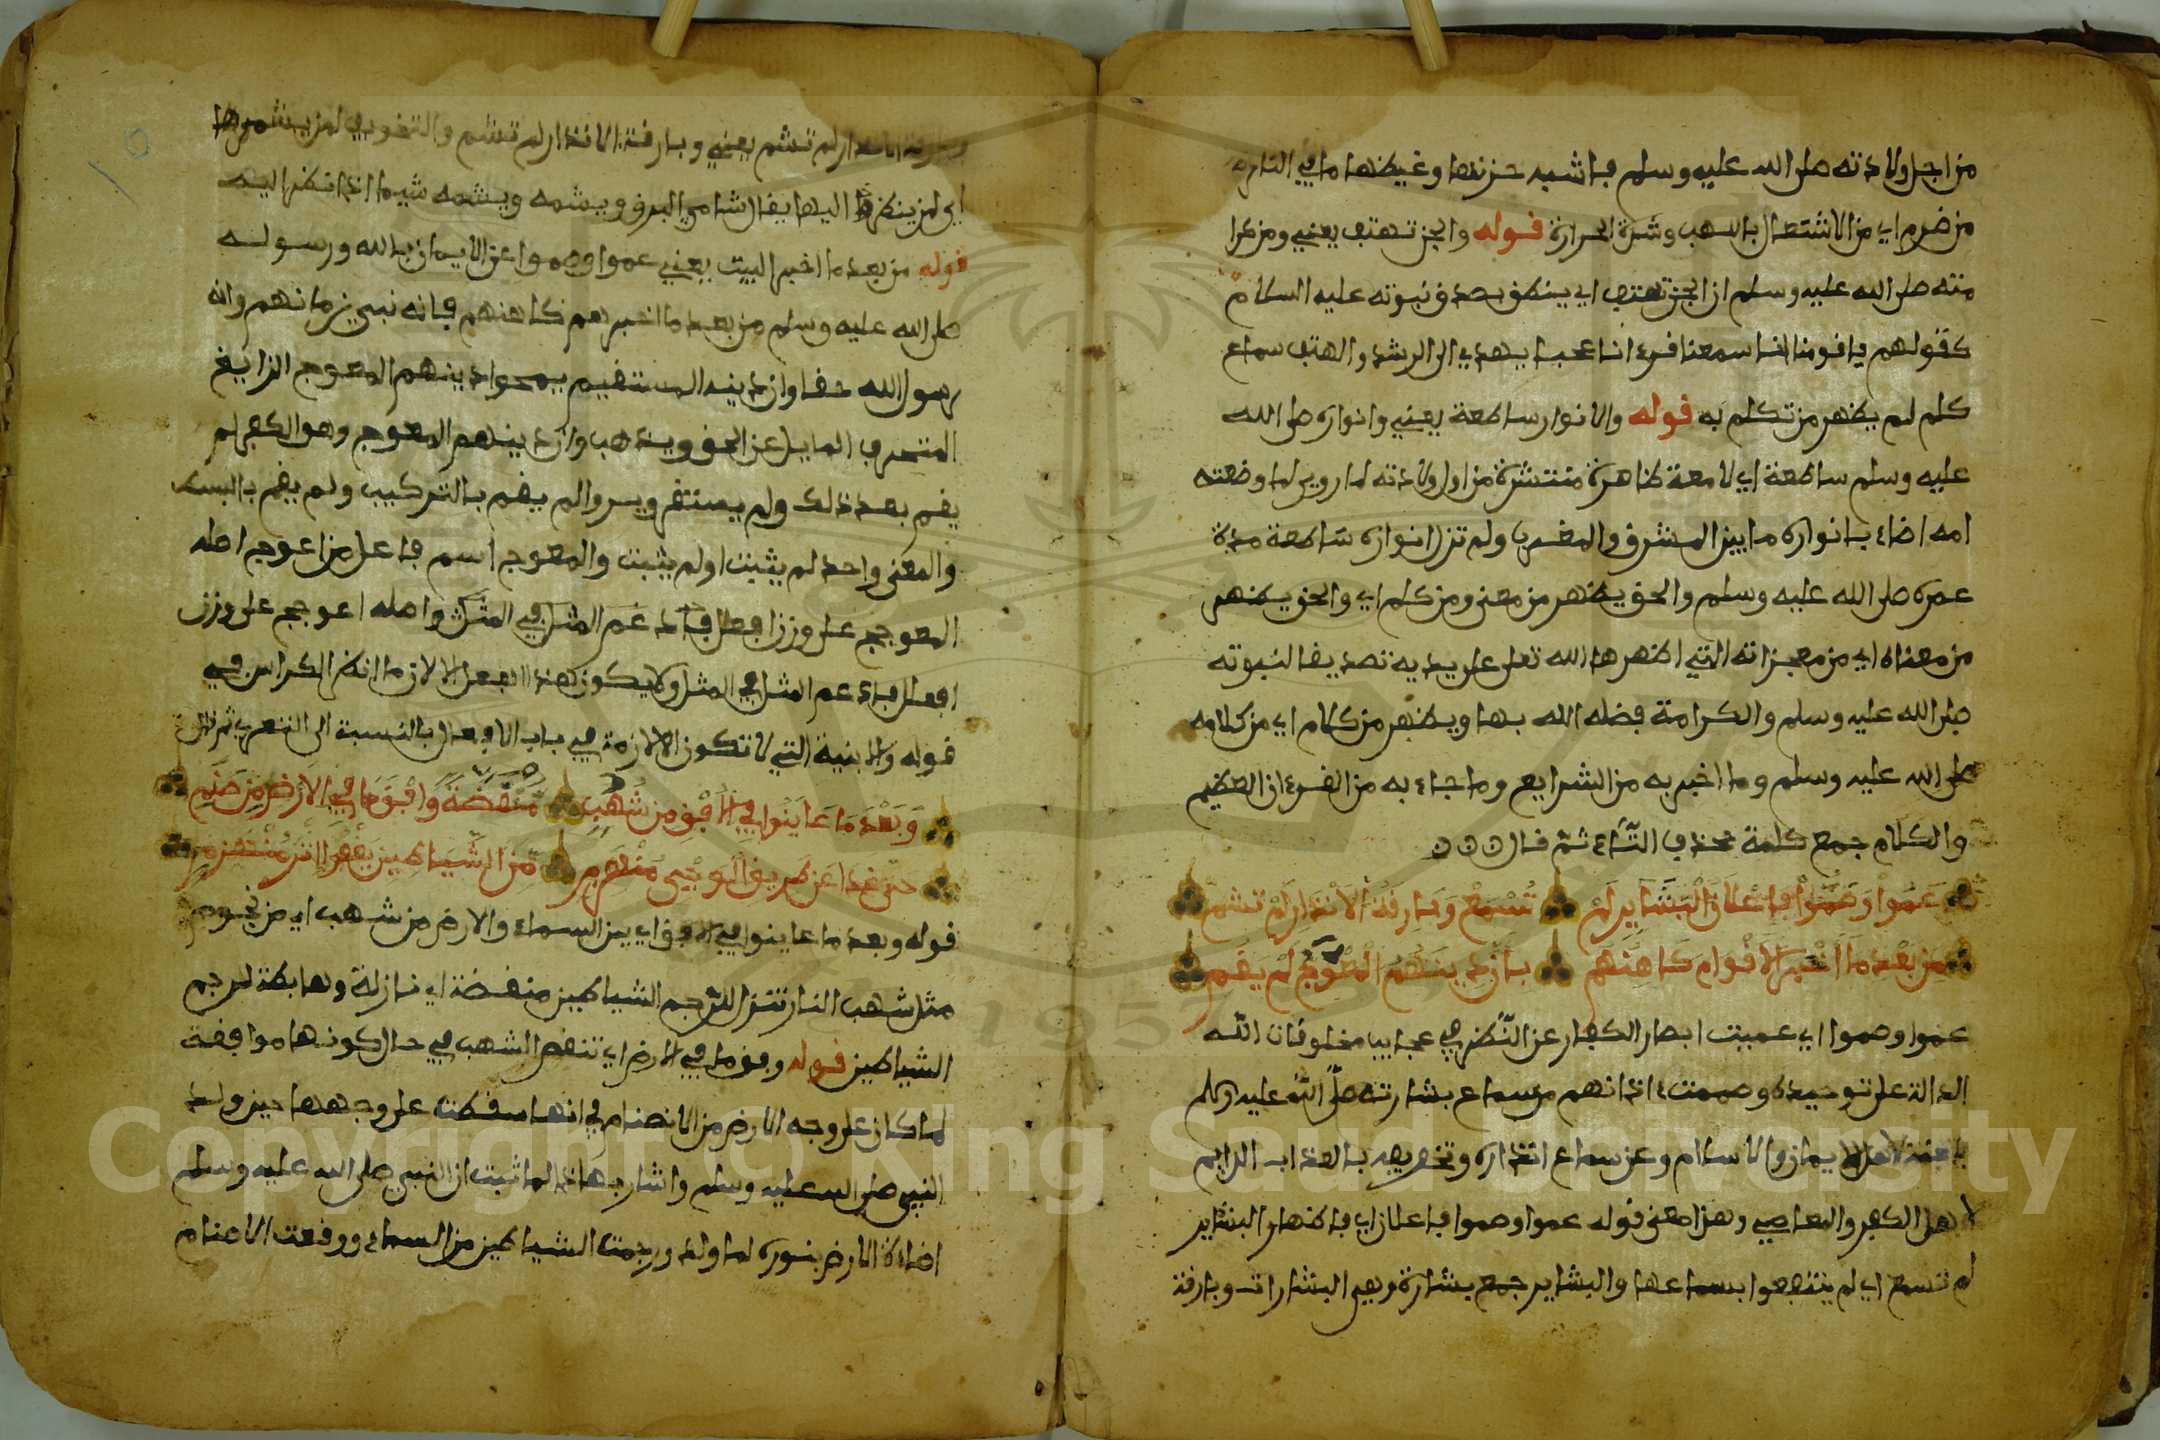 من اجل ولادته صلى الله عليه وسلم فاشبه حزنها وغيظها ما في النار
من ضرم اي من الاشتعال باللهب وشدة الحرارة قوله والجن تهتف يعني ومن
صلى الله عليه وسلم ان الجن تهتف اي ينطق بصدق نبوته عليه السلام
كقولهم يا قومنا انا سمعنا قرءانا عجبا يهدي الى الرشد والهتف سماع
كلم لم يظهر من تكلم به قوله والانوار ساطعة يعني وانواره صلى الله
عليه وسلم ساطعة اي لامعة ظاهرة منتشرة من اول ولادته لما روي لما وضعته
امه اضاء بانواره ما بين المشرق والمغرب ولم تزل انواره ساطعة مدة
عمره صلى الله عليه وسلم والحق يظهر من معنى ومن كلم اي والحق يظهر
من معناه اي من معجزاته التي اظهرها الله تعلى على يديه تصديقا لنبوته
صلى الله عليه وسلم والكرامة فضله الله بها ويظهر من كلام اي من كلامه
صلى الله عليه وسلم وما اخبر به من الشرايع وما جاء به من القرءان العظيم
والكلام جمع كلمة بحذف التاء ثم قال
عموا وصموا فاعلان البشاير لم تسمع وبارقة الانذار لم تشم
من بعد ما اخبر الاقوام كاهنهم بان دينهم المعوج لم يقم
عموا وصموا اي عميت ابصار الكفار عن النظر في عجايب مخلوقات الله
الدالة على توحيده وصمت ءاذانهم من سماع بشارته صلى الله عليه وسلم
لاهل الايمان والاسلام وعن سماع انذاره وتخويفه بالعذاب
لاهل الكفر والمعاصي وهذا معنى قوله عموا وصموا فاعلان اي فاظهار البشاير
لم تسمع اي لم ينتفعوا بسماعها والبشاير جمع بشارة وهي البشارات وبارقة
وبارقة الانذار لم تشم يعني وبارقة الانذار لم تشم والتخويف لمن يشمها
اي لمن ينظر اليها يقال شام البرق ويشمه ويشمه شيما اذا نظر اليه
قوله من بعد ما اخبر البيت يعني عموا وصموا عن الايمان بالله ورسوله
صلى الله عليه وسلم من بعد ما اخبرهم كاهنهم فانه نبي زمانهم وانه
رسول الله حقا وان دينه المستقيم يمحوا دينهم المعوج الزايغ
المنحرف المايل عن الحق ويذهب وان دينهم المعوج وهو الكفر لم
يقم بعد ذلك ولم يستقر ويروا لم يقم بالتركيب ولم يقم
والمعنى واحد لم يثبت او لم يثبت والمعوج اسم فاعل من اعوج اصله
المعوجج على وزن افعل فادغم المثل في المثل واصله اعوجج على وزن
افعلل فادغم المثل في المثل ولا يكون هذا الفعل الا لازما انظر الكراس في
قوله والابنية التي لا تكون الا لازمة في باب الافعال بالنسبة الى التعدي ثم قال
وبعد ما عاينوا في الافق من شهب منقضة وفق ما في الارض من صنم
حتى غدا عن طريق الوحي منهزم من الشياطين يقفوا اثر منهزم
قوله وبعد ما عاينوا في الافق اي بين السماء والارض من شهب اي من نجوم
مثل شهب النار تنزل لترجم الشياطين منقضة اي نازلة وهابطة لرجم
الشياطين قوله وفق ما في الارض اي تنقض الشهب في حال كونها موافقة
لما كان على وجه الارض من الاصنام في انها سقطت على وجهها حين ولد
النبي صلى الله عليه وسلم واشار بهاذا لما ثبت ان النبي صلى الله عليه وسلم
اضاءة الارض بنوره لما ولد ورجمت الشياطين من السماء ووقعت الاصنام
Copyright © King Saud University
1957